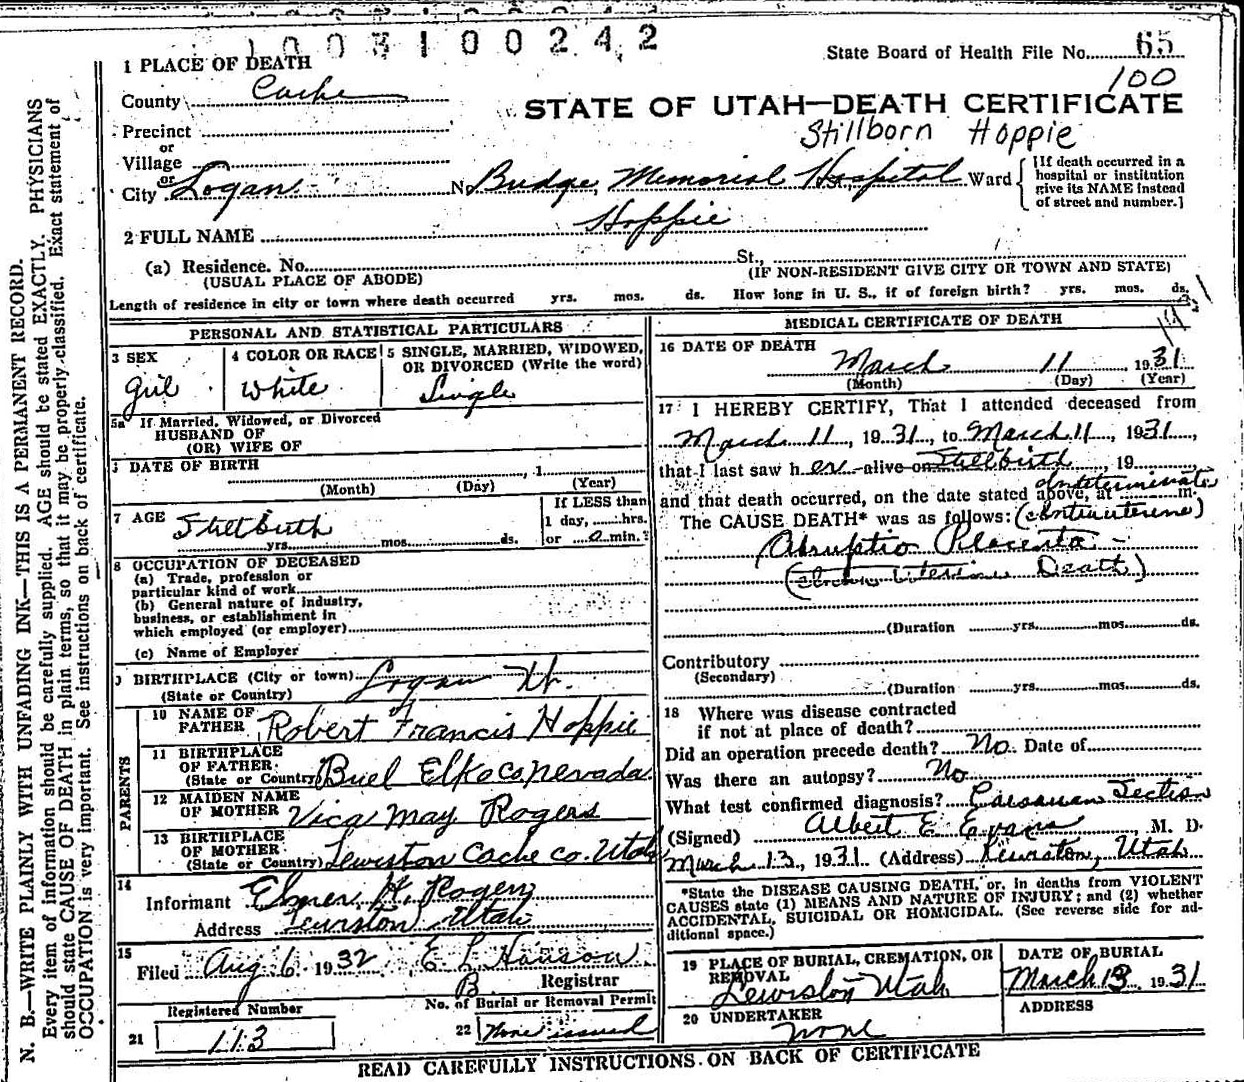 1003100242
State Board of Health File No. 65
100
1 PLACE OF DEATH
County Cache
STATE OF UTAH—DEATH CERTIFICATE
Precinct
Stillborn Hoppie
or
Village
or
City Logan N Budge Memorial Hospital Ward
[If death occurred in a hospital or institution give its NAME instead of street and number.]
2 FULL NAME Hoppie
(a) Residence. No. St.,
(USUAL PLACE OF ABODE) (IF NON-RESIDENT GIVE CITY OR TOWN AND STATE)
Length of residence in city or town where death occurred yrs. mos. ds. How long in U. S., if of foreign birth? yrs. mos. ds.
PERSONAL AND STATISTICAL PARTICULARS
3 SEX
Girl
4 COLOR OR RACE
White
5 SINGLE, MARRIED, WIDOWED,
OR DIVORCED (Write the word)
Single
5a If Married, Widowed, or Divorced
HUSBAND OF
(OR) WIFE OF
DATE OF BIRTH , 1
(Month) (Day) (Year)
7 AGE Stillbirth
yrs. mos. ds.
If LESS than
1 day, hrs.
or 0 min.?
8 OCCUPATION OF DECEASED
(a) Trade, profession or
particular kind of work
(b) General nature of industry,
business, or establishment in
which employed (or employer)
(c) Name of Employer
9 BIRTHPLACE (City or town) Logan Ut.
(State or Country)
PARENTS
10 NAME OF
FATHER Robert Francis Hoppie
11 BIRTHPLACE
OF FATHER
(State or Country) Buel Elko co nevada
12 MAIDEN NAME
OF MOTHER Vica May Rogers
13 BIRTHPLACE
OF MOTHER
(State or Country) Lewiston Cache co. Utah
14
Informant Elmer H. Rogers
Address Lewiston Utah
15
Filed Aug 6 1932, E L Hanson
B. Registrar
Registered Number No. of Burial or Removal Permit
21 113 22 None issued
MEDICAL CERTIFICATE OF DEATH
16 DATE OF DEATH
March 11, 1931
(Month) (Day) (Year)
17 I HEREBY CERTIFY, That I attended deceased from
March 11, 1931, to March 11, 1931,
that I last saw her alive on Stillbirth, 19
Indeterminate
and that death occurred, on the date stated above, at m.
The CAUSE DEATH* was as follows: (Intrauterine)
Abruptio Placenta -
Uterine Death)
(Duration yrs. mos. ds.
Contributory
(Secondary)
(Duration yrs. mos. ds.
18 Where was disease contracted
if not at place of death?
Did an operation precede death? No. Date of
Was there an autopsy? No
What test confirmed diagnosis? Caesarean Section
(Signed) Albert E Evans M. D.
March 13, 1931 (Address) Lewiston, Utah
*State the DISEASE CAUSING DEATH, or, in deaths from VIOLENT
CAUSES state (1) MEANS AND NATURE OF INJURY; and (2) whether
ACCIDENTAL, SUICIDAL OR HOMICIDAL. (See reverse side for ad-
ditional space.)
19 PLACE OF BURIAL, CREMATION, OR
REMOVAL
Lewiston Utah
DATE OF BURIAL
March 13, 1931
20 UNDERTAKER
none
ADDRESS
READ CAREFULLY INSTRUCTIONS ON BACK OF CERTIFICATE
N. B.—WRITE PLAINLY WITH UNFADING INK—THIS IS A PERMANENT RECORD.
Every item of information should be carefully supplied. AGE should be stated EXACTLY. PHYSICIANS
should state CAUSE OF DEATH in plain terms, so that it may be properly classified. Exact statement of
OCCUPATION is very important. See instructions on back of certificate.